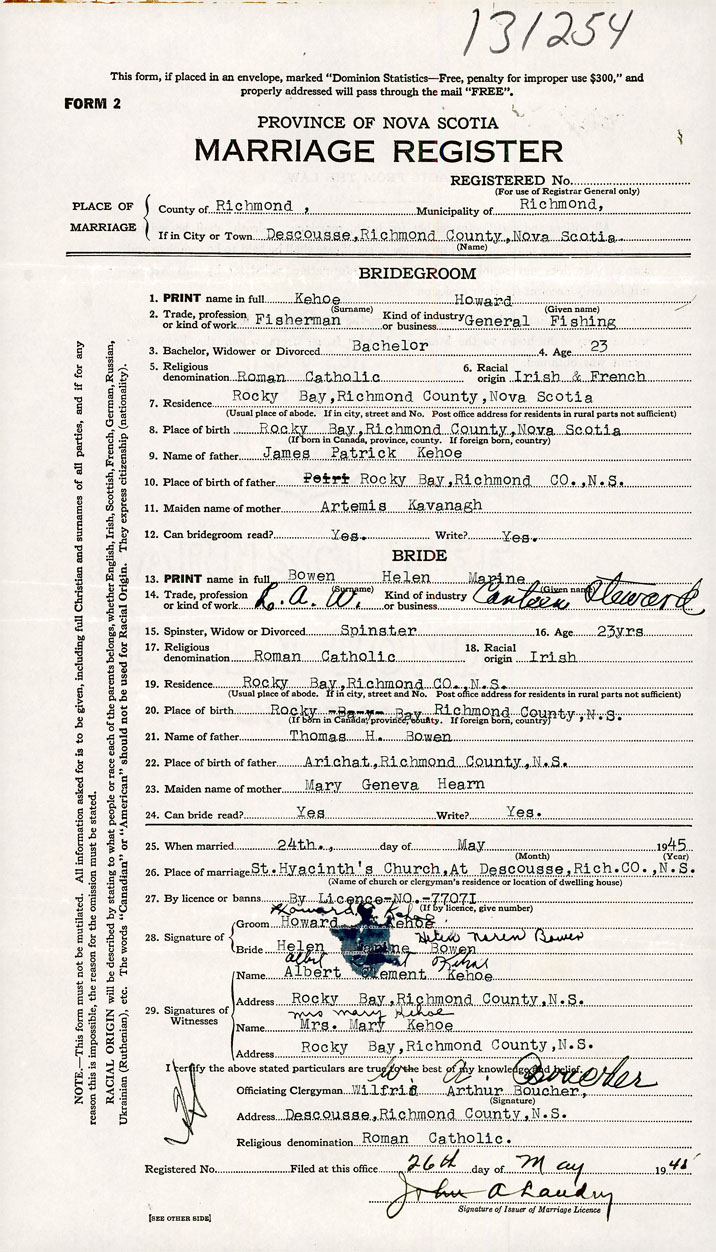 131254
This form, if placed in an envelope, marked "Dominion Statistics—Free, penalty for improper use $300," and
properly addressed will pass through the mail "FREE".
FORM 2
PROVINCE OF NOVA SCOTIA
MARRIAGE REGISTER
REGISTERED No.
(For use of Registrar General only)
PLACE OF MARRIAGE
County of Richmond , Municipality of Richmond,
If in City or Town Descousse,Richmond County,Nova Scotia
(Name)
BRIDEGROOM
1. PRINT name in full Kehoe Howard
(Surname) (Given name)
2. Trade, profession or kind of work Fisherman Kind of industry or business General Fishing
3. Bachelor, Widower or Divorced Bachelor 4. Age 23
5. Religious denomination Roman Catholic 6. Racial origin Irish & French
7. Residence Rocky Bay,Richmond County,Nova Scotia
(Usual place of abode. If in city, street and No. Post office address for residents in rural parts not sufficient)
8. Place of birth Rocky Bay,Richmond County,Nova Scotia
(If born in Canada, province, county. If foreign born, country)
9. Name of father James Patrick Kehoe
10. Place of birth of father Rocky Bay,Richmond CO.,N.S.
11. Maiden name of mother Artemis Kavanagh
12. Can bridegroom read? Yes. Write? Yes.
BRIDE
13. PRINT name in full Bowen Helen Marine
(Surname) (Given name)
14. Trade, profession or kind of work L. A. W. Kind of industry or business Canteen Steward
15. Spinster, Widow or Divorced Spinster 16. Age 23yrs
17. Religious denomination Roman Catholic 18. Racial origin Irish
19. Residence Rocky Bay,Richmond CO.,N.S.
(Usual place of abode. If in city, street and No. Post office address for residents in rural parts not sufficient)
20. Place of birth Rocky Bay Richmond County,N.S.
(If born in Canada, province, county. If foreign born, country)
21. Name of father Thomas H. Bowen
22. Place of birth of father Arichat,Richmond County,N.S.
23. Maiden name of mother Mary Geneva Hearn
24. Can bride read? Yes Write? Yes.
25. When married 24th., day of May 1945
(Month) (Year)
26. Place of marriage St.Hyacinth's Church,At Descousse,Rich.CO.,N.S.
(Name of church or clergyman's residence or location of dwelling house)
27. By licence or banns By Licence-NO.-77071
(If by licence, give number)
28. Signature of
Howard Kehoe
Groom Howard Kehoe
Helen Bowen
Bride Helen Marine Bowen
29. Signatures of Witnesses
Name Albert Clement Kehoe
Address Rocky Bay,Richmond County,N.S.
Mrs Mary Kehoe
Name Mrs. Mary Kehoe
Address Rocky Bay,Richmond County,N.S.
I certify the above stated particulars are true to the best of my knowledge and belief.
W. A. Boucher
Officiating Clergyman Wilfrid Arthur Boucher,
(Signature)
Address Descousse,Richmond County,N.S.
Religious denomination Roman Catholic.
Registered No. Filed at this office 26th day of May 1945
John A Landry
Signature of Issuer of Marriage Licence
[SEE OTHER SIDE]
NOTE.—This form must not be mutilated. All information asked for is to be given, including full Christian and surnames of all parties, and if for any
reason this is impossible, the reason for the omission must be stated.
RACIAL ORIGIN will be described by stating to what people or race each of the parents belongs, whether English, Irish, Scottish, French, German, Russian,
Ukrainian (Ruthenian), etc. The words "Canadian" or "American" should not be used for Racial Origin. They express citizenship (nationality).